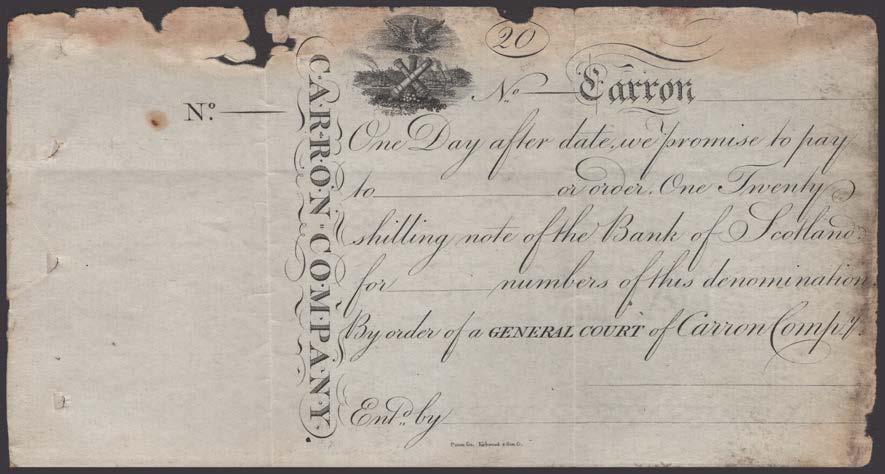 20
Nº
Nº Carron
CARRON=COMPANY.
One Day after date, we promise to pay
to or order. One Twenty
shilling note of the Bank of Scotland.
for numbers of this denomination.
By order of a GENERAL COURT of Carron Compy.
Entd. by
Kirkwood & Son